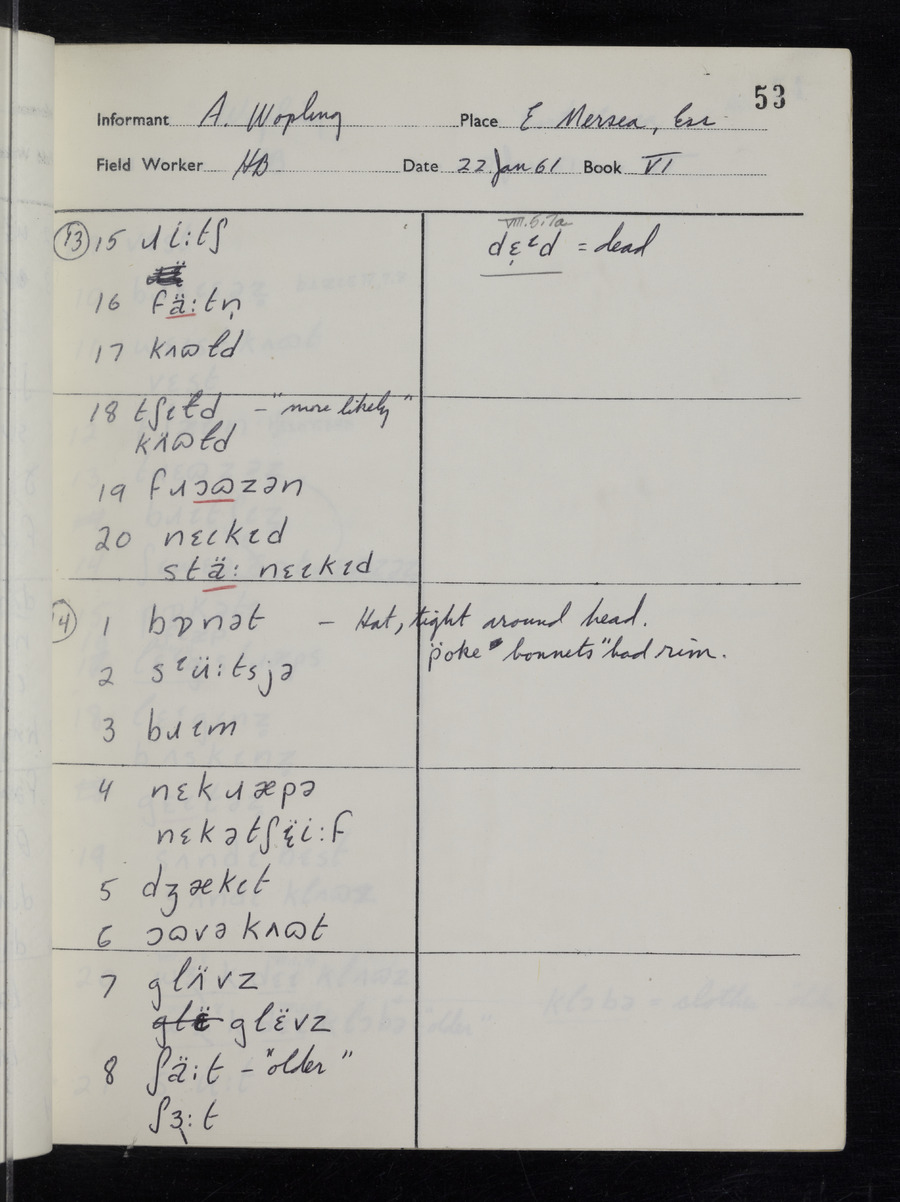 53
Informant A. Wopling Place E Mersea, Ess
Field Worker HB Date 22 Jan 61 Book VI
13 15 ɹi:tʃ
VIII.5.7a
dɛ̣ᶦd = dead
16 fä:tn̩
17 kʌɷɫd
18 tʃɩɫd - "more likely"
kʌ̈ɷɫd
19 fɹɔɷzən
20 nɛɩkɩd
stä: nɛɩkɩd
14 1 bɒnət - Hat, tight around head.
"poke bonnets" had rim.
2 sᶦü:tsjə
3 bɹɩm
4 nɛkɹæpə
nɛkətʃɛ̈i:f
5 dʒækɩt
6 ɔɷvə kʌɷt
7 glʌ̈vz
glëvz
8 ʃä:t - "older"
ʃɜ:t